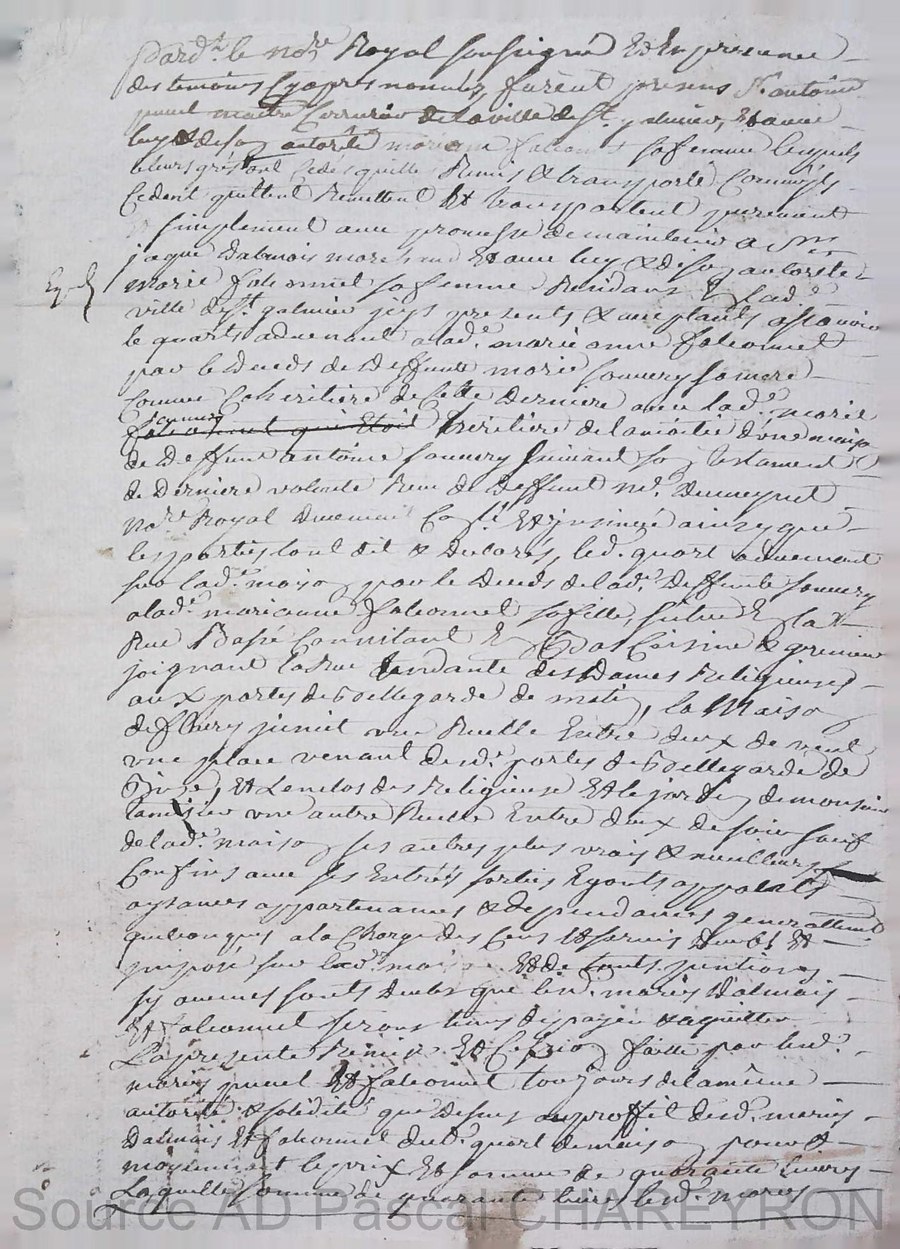 Pard.t le no.re Royal soussigné Et En presence
des temoins Cyapres nommés, furent presens S.r antoine
punel maitre Serrurier de la ville de S.t galmier, Et avec
luy & de son autorité marianne falconnet sa femme lesquels
de leurs grés ont Cedés quitté Remis & transporté Comme ils
Cedent quittent Remettent Et transportent purement
& simplement avec promesse de maintenir a S.r
jaque Dalmais marchand Et avec luy & de son autorité
marie falconnet sa femme Residans En lad.e
ville de S.t galmier jcys presents & acceptants assavoir
le quart advenant a lad.e marie anne falconnet
par le Deceds de Deffunte marie Souvery sa mere
Comme Coheritiere de Cette Derniere avec lad.e marie
Souvery
falconnet qui Etoit heritiere de la moitié d'une maison
de Deffunt antoine Souvery suivant son testament
de Derniere volonté Reçu de Deffunt me.
no.re Royal Duement Con.lé Et jnsinué ainsy que
les parties l'ont dit & Declaré, led. quart advenant
sur lad.e maison par le Deceds de lad.e Deffunte Souvery
a lad.e marianne falconnet sa fille, située En la
Rue Basse Consistant En Bas Cuisine & grenier
joignant la Rue tendante des Dames Religieuses
aux portes de Bellegarde de matin, la Maison
de fleury junit une Ruelle Entre deux de vent
une place venant desd. portes de Bellegarde de
Bize, Et L'enclos des Religieuse Et le jardin de monsieur
une autre Ruelle Entre deux de soir sauf
de lad.e maison ses autres plus vrais & meilleurs
Confins avec ses Entrés sorties Egouts appats
aysances appartenances & dependances generallement
quelconques, a la Charge des Cens Et servis deubs Et
jmposé sur lad.e maison Et de touts pentions
sy aucunes sonts deubs que lesd. mariés Dalmais
Et falconnet seront tenus de payer & aquitter
La presente Remise Et Cession faitte par lesd.
mariés punel Et falconnet toujours de la même
autorité & solidité que Dessus au proffit desd. mariés
Dalmais Et falconnet dud. quart de maison pour &
moyennant le prix Et somme de quarante livres
Laquelle somme de quarante livres lesd. mariés
Source AD Pascal CHAREYRON